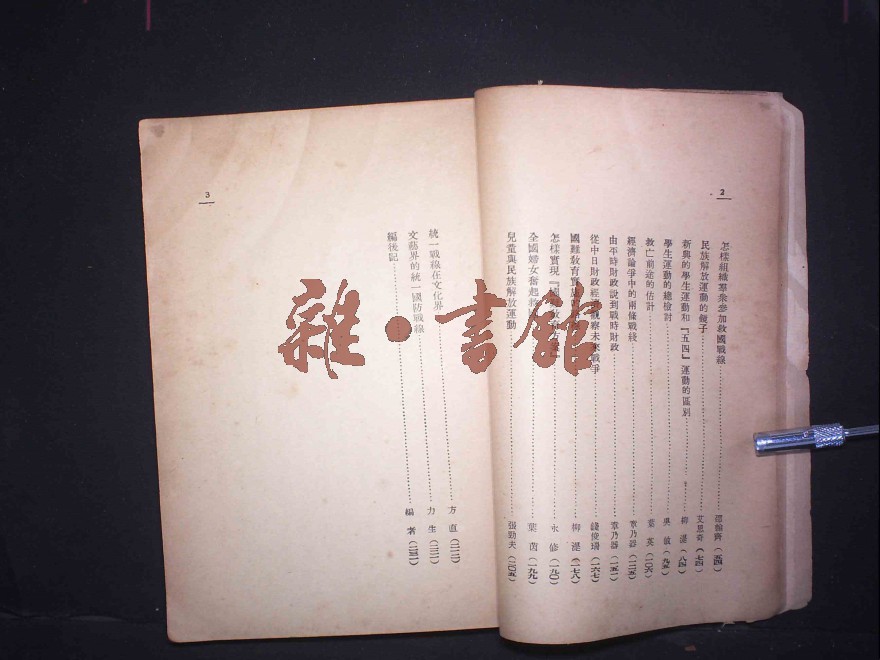 2
怎樣組織羣衆參加救國戰線……張翰齊(五四)
民族解放運動的鏡子……艾思奇(七四)
新興的學生運動和『五四』運動的區別……柳湜(八四)
學生運動的總檢討……吳敏(九五)
救亡前途的估計……葉英(一〇六)
經濟論爭中的兩條戰綫……章乃器(一二五)
由平時財政說到戰時財政……章乃器(一五一)
從中日財政經 觀察未來戰爭……錢俊瑞(一六七)
國難敎育實 ……柳湜(一七八)
怎樣實現『國 ……永修(一九〇)
全國婦女奮起救 ……葉茵(一九九)
兒童與民族解放運動……張勁夫(二〇五)
3
統一戰線在文化界……方直
文藝界的統一國防戰線……力生
編後記……編者
雜·書館